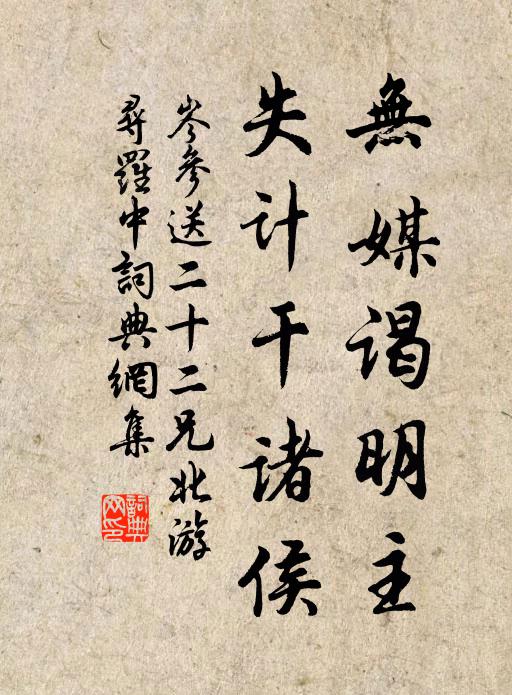 無媒謁明主
失计干诸侯
岑參送二十二兄北游
尋羅中詞典網集
詞典
网印